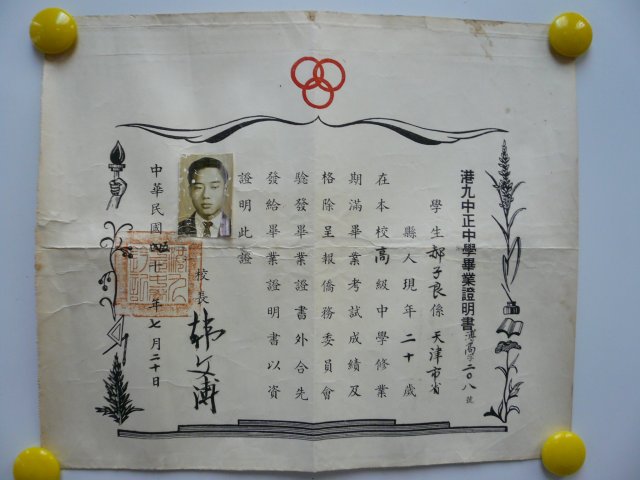 港九中正中學畢業證明書
高字二〇八號
學生郝子良係天津市省
縣人現年二十歲
在本校高級中學修業
期滿畢業考試成績及
格除呈報僑務委員會
驗發畢業證書外合先
發給畢業證明書以資
證明此證
校長
中華民國四十七年七月二十日